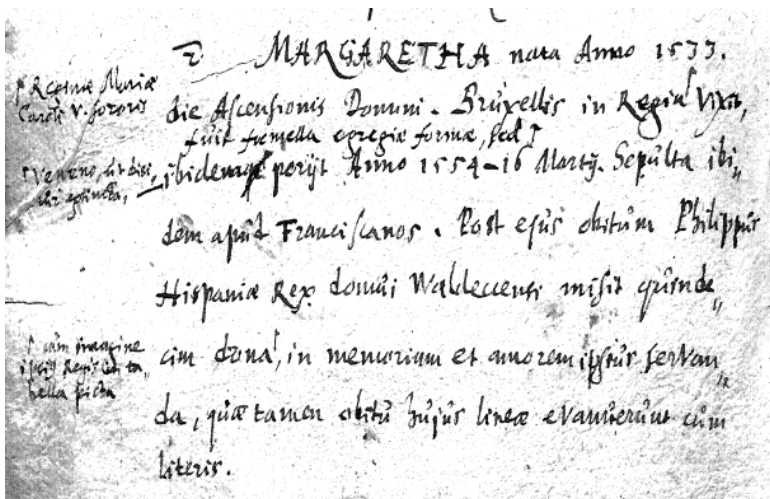 2 MARGARETHA nata Anno 1533.
die Ascensionis Domini. Bruxellis in Regia Vixit,
fuit femella egregiæ formæ, sed
ibidemque perijt Anno 1554-16 Martij. Sepulta ibi„
dem apud Franciscanos. Post ejus obitum Philippus
Hispaniæ Rex domui Waldeccensi misit quinde„
cim dona, in memoriam et amorem ipsius servan„
da, quæ tamen obitu hujus lineæ evanuerunt cum
literis.
Reginæ Mariæ
Caroli V. sororis
Veneno, ut dici„
extincta,
cum imagine
ipsius Regis in ta„
bella picta